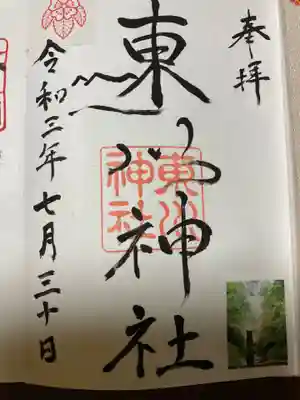 奉拝
東沼神社
東沼
神社
令和三年七月三十日